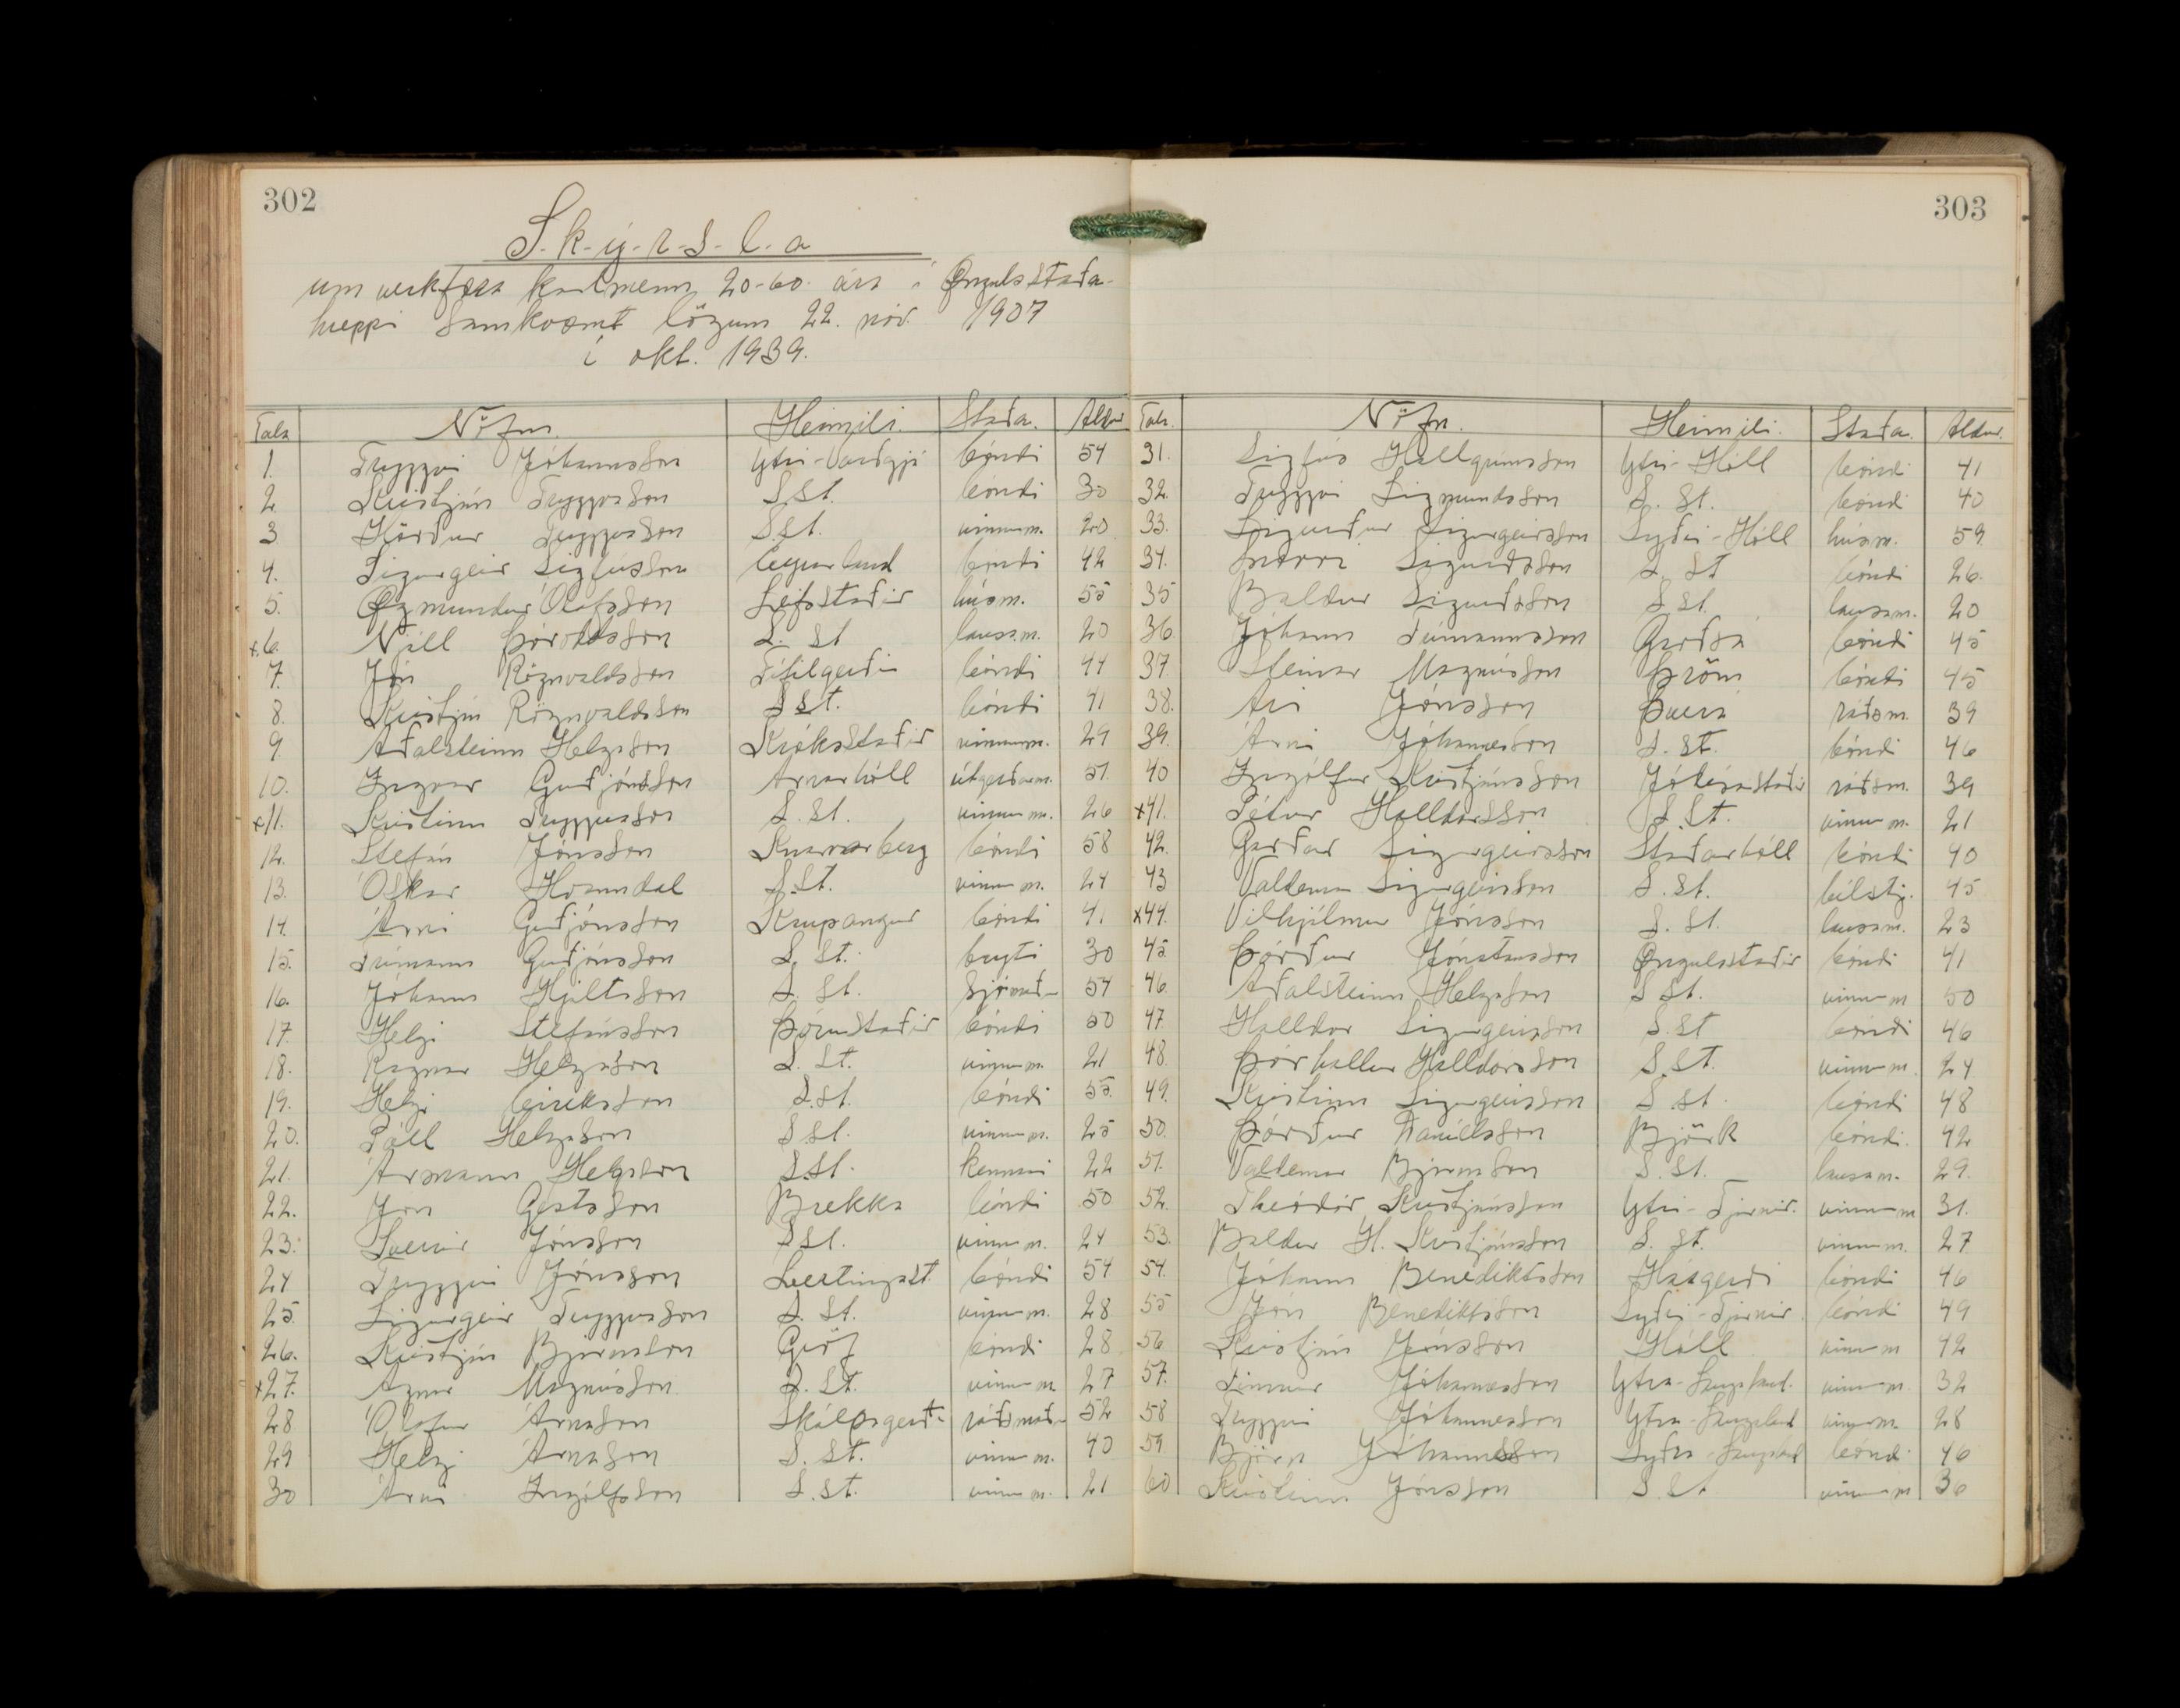 302
S-k-ý-r-s-l-a
um verkfæra karlmenn 20-60 ára í Öngulsstaða-
hreppi samkvæmt lögum 22. nóv. 1907
í okt. 1939.
Tala Nöfn. Heimili. Staða. Aldur
1. Tryggvi Jóhannsson Ytri-Varðgjá bóndi 54
2. Kristján Tryggvason S.st. bóndi 30
3. Hörður Tryggvason S.st. vinnum. 20
4. Sigurgeir Sigfússon Eyrarland bóndi 42
5. Ögmundur Ólafsson Leifsstaðir húsm. 55
x6. Njáll Þóroddsson S. st lausam. 20
7. Jón Rögnvaldsson Fífilgerði bóndi 44
8. Kristján Rögnvaldsson S.st. bóndi 41
9 Aðalsteinn Helgason Króksstaðir vinnum. 29
10. Ingvar Guðjónsson Arnarhóll útgerðarm. 51.
x11. Kristinn Tryggvason S.st. vinnum. 26
12. Stefán Jónsson Knarrarberg bóndi 58
13. Óskar Hranndal S.st. vinnum. 24
14. Árni Guðjónsson Kaupangur bóndi 41
15. Trúmann Guðjónsson S. st. bryti 30
16. Jóhann Hjaltason S. st. 54
17. Helgi Stefánsson Þórustaðir bóndi 50
18. Ragnar Helgason S. st. vinnum. 21
19. Helgi Eiríksson S.st. bóndi 55.
20. Páll Helgason S.st. vinnum. 25
21. Ármann Helgason S.st. kennari 22
22. Jón Gestsson Brekka bóndi 50
23. Sverrir Jónsson S.st. vinnum. 24
24 Tryggvi Jónsson bóndi 54
25. Sigurgeir Tryggvason S. st. vinnum. 28
26. Kristján Bjarnason Gröf bóndi 28
x27. Agnar Magnússon S. st. vinnum 27
28 Ólafur Árnason Skálpagerði ráðsmað. 52
29 Helgi Árnason S. st. vinnum. 40
30 Árni Ingólfsson S.st. vinnum. 21
303
Tala. Nöfn. Heimili. Staða. Aldur.
31. Sigfús Hallgrímsson Ytri-Hóll bóndi 41
32. Tryggvi Sigmundsson S. st. bóndi 40
33. Sigurður Sigurgeirsson Syðri-Hóll húsm. 59.
34. Snorri Sigurðsson S. st bóndi 26.
35 Baldur Sigurðsson S.st. lausam. 20
36. Jóhann Garðsá bóndi 45
37. Steinar Magnússon Þröm bóndi 45
38. Ari Jónsson Þverá ráðsm. 39
39. Árni Jóhannesson S. st. bóndi 46
40 Ingólfur Kristjánsson Jódísarstaðir ráðsm. 39
x41. Pétur Halldórsson S.St. vinnum. 21
42. Garðar Sigurgeirsson Staðarhóll bóndi 40
43 Valdemar Sigurgeirsson S.st. bílstj. 45
x44. Vilhjálmur Jónsson S. st. lausam. 23
45 Þórður Jónatansson Öngulsstaðir bóndi 41
46 Aðalsteinn Helgason S st. vinnum 50
47. Halldór Sigurgeirsson S.st bóndi 46
48. Þórhallur Halldórsson S.st. vinnum. 24
49. Kristinn Sigurgeirsson S.st. bóndi 48
50. Þórður Daníelsson Björk bóndi. 42
51. Valdemar Bjarnason S.st. lausam. 29.
52. Theódór Kristjánsson Ytri-Tjarnir. vinnum 31.
53. Baldur H. Kristjánsson S. st. vinnum. 27
54. Jóhann Benediktsson Háagerði bóndi 46
55 Jón Benediktsson Syðri-Tjarnir. bóndi 49
56 Kristján Jónsson Hóll vinnum 42
57. Jóhannesson Ytra-Laugaland. vinnum. 32
58 Tryggvi Jóhannesson Ytra-Laugaland vinnum. 28
59. Björn Jóhannsson Syðra-Laugaland bóndi 46
60 Kristinn Jónsson S.st vinnum 36